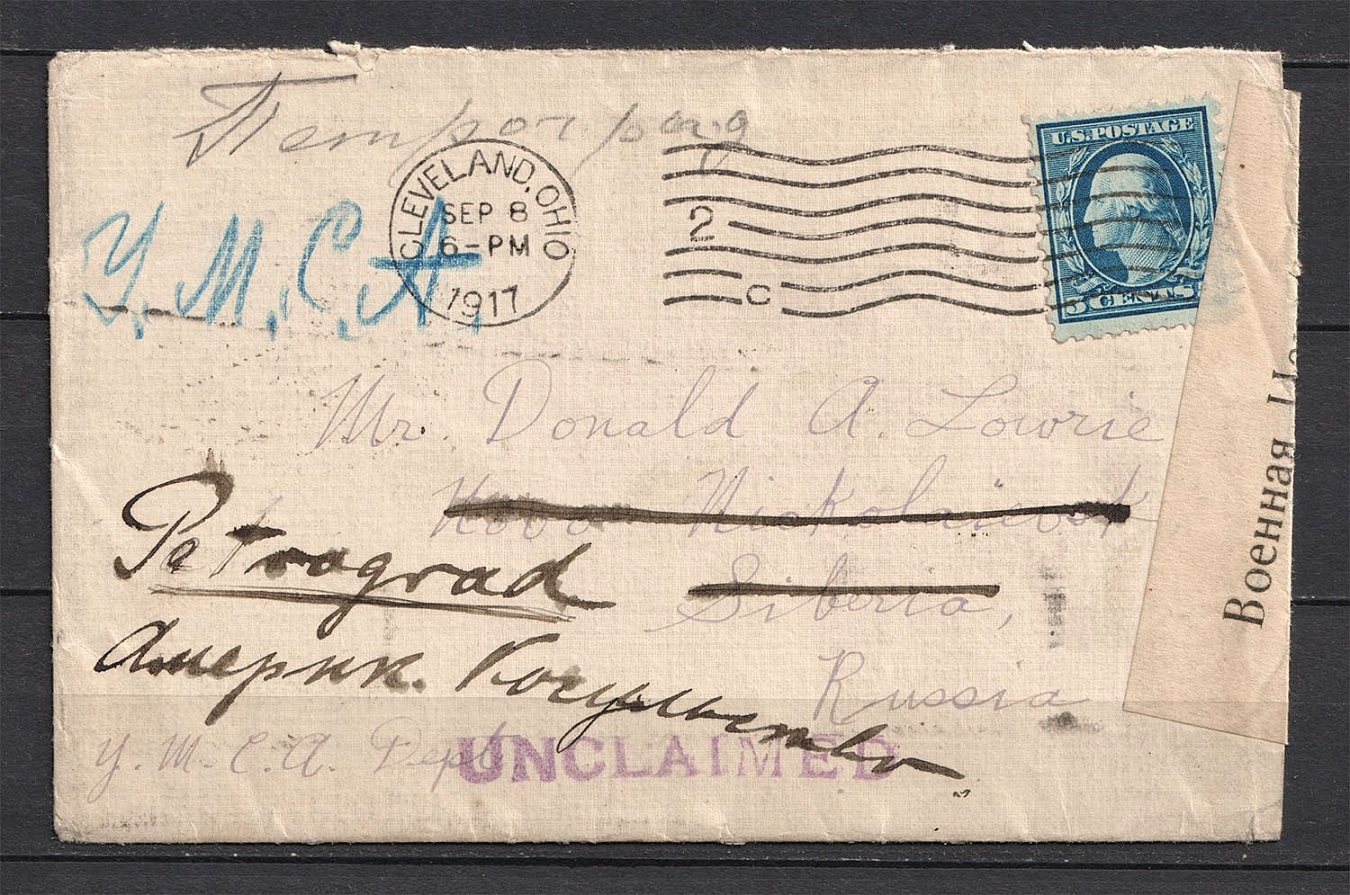 Петроград
CLEVELAND, OHIO
SEP 8
6-PM
1917
2
C
U.S. POSTAGE
5 CENTS 5
Y.M.C.A.
Mr. Donald A. Lowrie
Novo Nickolaievsk
Siberia,
Russia
Petrograd
Америк. Консульство
Y.M.C.A. Dept
UNCLAIMED
Военная